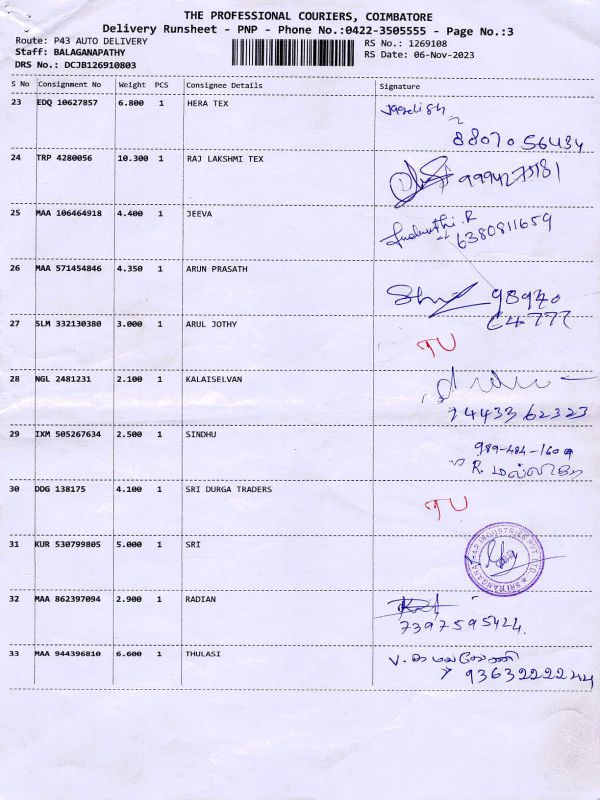 THE PROFESSIONAL COURIERS, COIMBATORE
Delivery Runsheet - PNP - Phone No.:0422-3505555 - Page No.:3
Route: P43 AUTO DELIVERY
RS No.: 1269108
Staff: BALAGANAPATHY
RS Date: 06-Nov-2023
DRS No.: DCJB126910803
S No Consignment No Weight PCS Consignee Details Signature
23 EDQ 10627857 6.800 1 HERA TEX Jagdish
88070 56434
24 TRP 4280056 10.300 1 RAJ LAKSHMI TEX
25 MAA 106464918 4.400 1 JEEVA
6380811659
26 MAA 571454846 4.350 1 ARUN PRASATH
98940
64777
27 SLM 332130380 3.000 1 ARUL JOTHY
TU
28 NGL 2481231 2.100 1 KALAISELVAN
74433 62323
29 IXM 505267634 2.500 1 SINDHU
R.
30 DDG 138175 4.100 1 SRI DURGA TRADERS
TU
31 KUR 530799805 5.000 1 SRI
32 MAA 862397094 2.900 1 RADIAN
7397595424
33 MAA 944396810 6.600 1 THULASI V.
9363222244